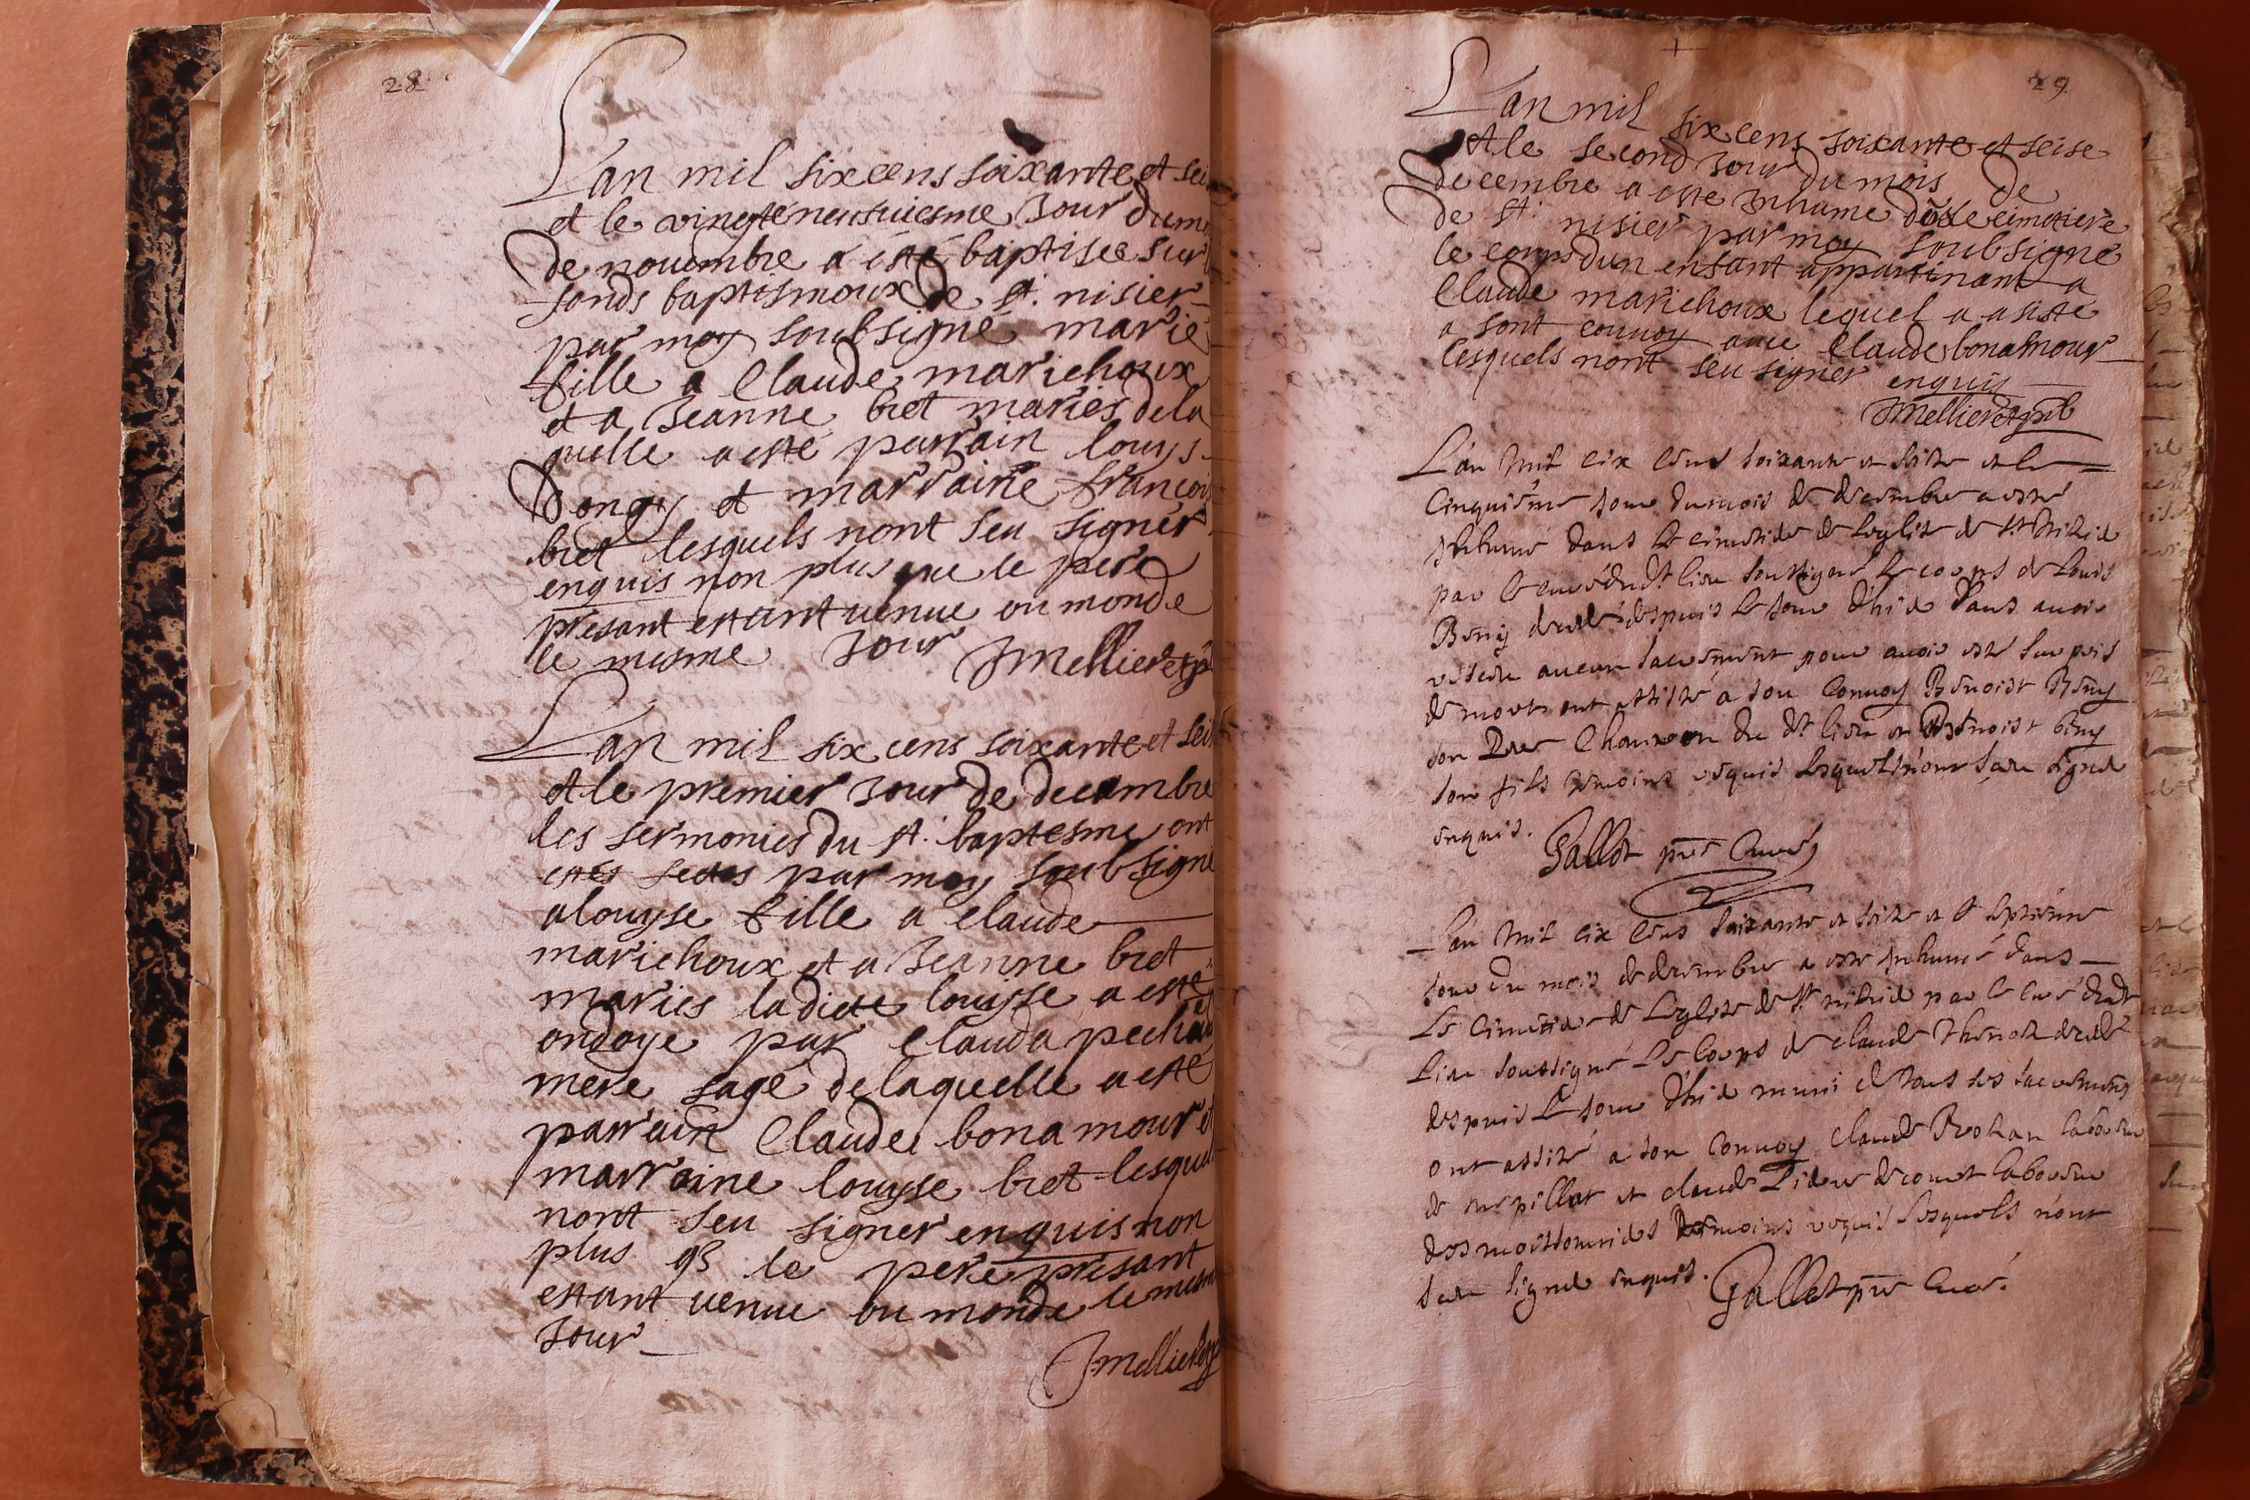 28
Lan mil six cens soixante et sei
et le vingt e neufuiesme Jour du mo
de nouembre a esté baptisee sur l
fonds baptismoux de st. nisier
par moy soubsigné marie
fille a Claude marichoux
et a Jeanne bret mariés de la
quelle a esté parrain louys
Dongy et marraine francois
bret lesquels nont seu signer
enquis non plus que le pere
present estant uenue ou monde
le mesme Jour JMellier
Lan mil six cens soixante et sei
et le premier Jour de decembre
les sermonies du st. baptesme ont
estes fectes par moy soubsigné
a louyse fille a Claude
marichoux et a Jeanne bret
maries ladicte louisse a esté
ondoye par Clauda pechau
mere sage de laquelle a esté
parrain Claude bonamour et
marraine louyse bret lesquel
nont seu signer enquis non
plus q3 le pere present
estant uenue ou monde le mesm
Jour
JMellier
29
Lan mil six cens soixante et seise
et le second Jour du mois de
decembre a este Inhume dās le cimetiere
de st. nisier par moy soubsigné
le corps dun enfant appartinant a
Claude marichoux lequel a asisté
a sont conuoy auec Claude bonamour
lesquels nont seu signer enquis
JMellier
L'an Mil six Cens soixante et seize et le
Cinquiéme Jour du mois de decembre a esté
Inhumé dans le cimetiere de l'eglise de St Nizier
par le curé dudt lieu soussigné le corps de Louis
Beny decedé despuis le Jour d'hier sans auoir
receu aucun sacrement pour auoir esté surpris
de mort ont assisté a son Conuoy Benoist Beny
son frere Charron du dt lieu et Benoist beny
son fils temoins requis lesquels n'ont sceu signer
enquis. Gallot ptre Curé
L'an Mil six Cens soixante et seize et le septiéme
Jour du mois de decembre a esté Inhumé dans
le Cimetiere de l'eglise de St nizier par le curé dudt
lieu soussigné le Corps de claude Thenon decedé
despuis le Jour d'hier muni de tous ses sacrements
ont assisté a son Conuoy claude Rohan laboureur
de merpillat et claude Lideur de comet laboureur
des moissonniers temoins requis lesquels n'ont
sceu signer enquis. Gallot ptre Curé.